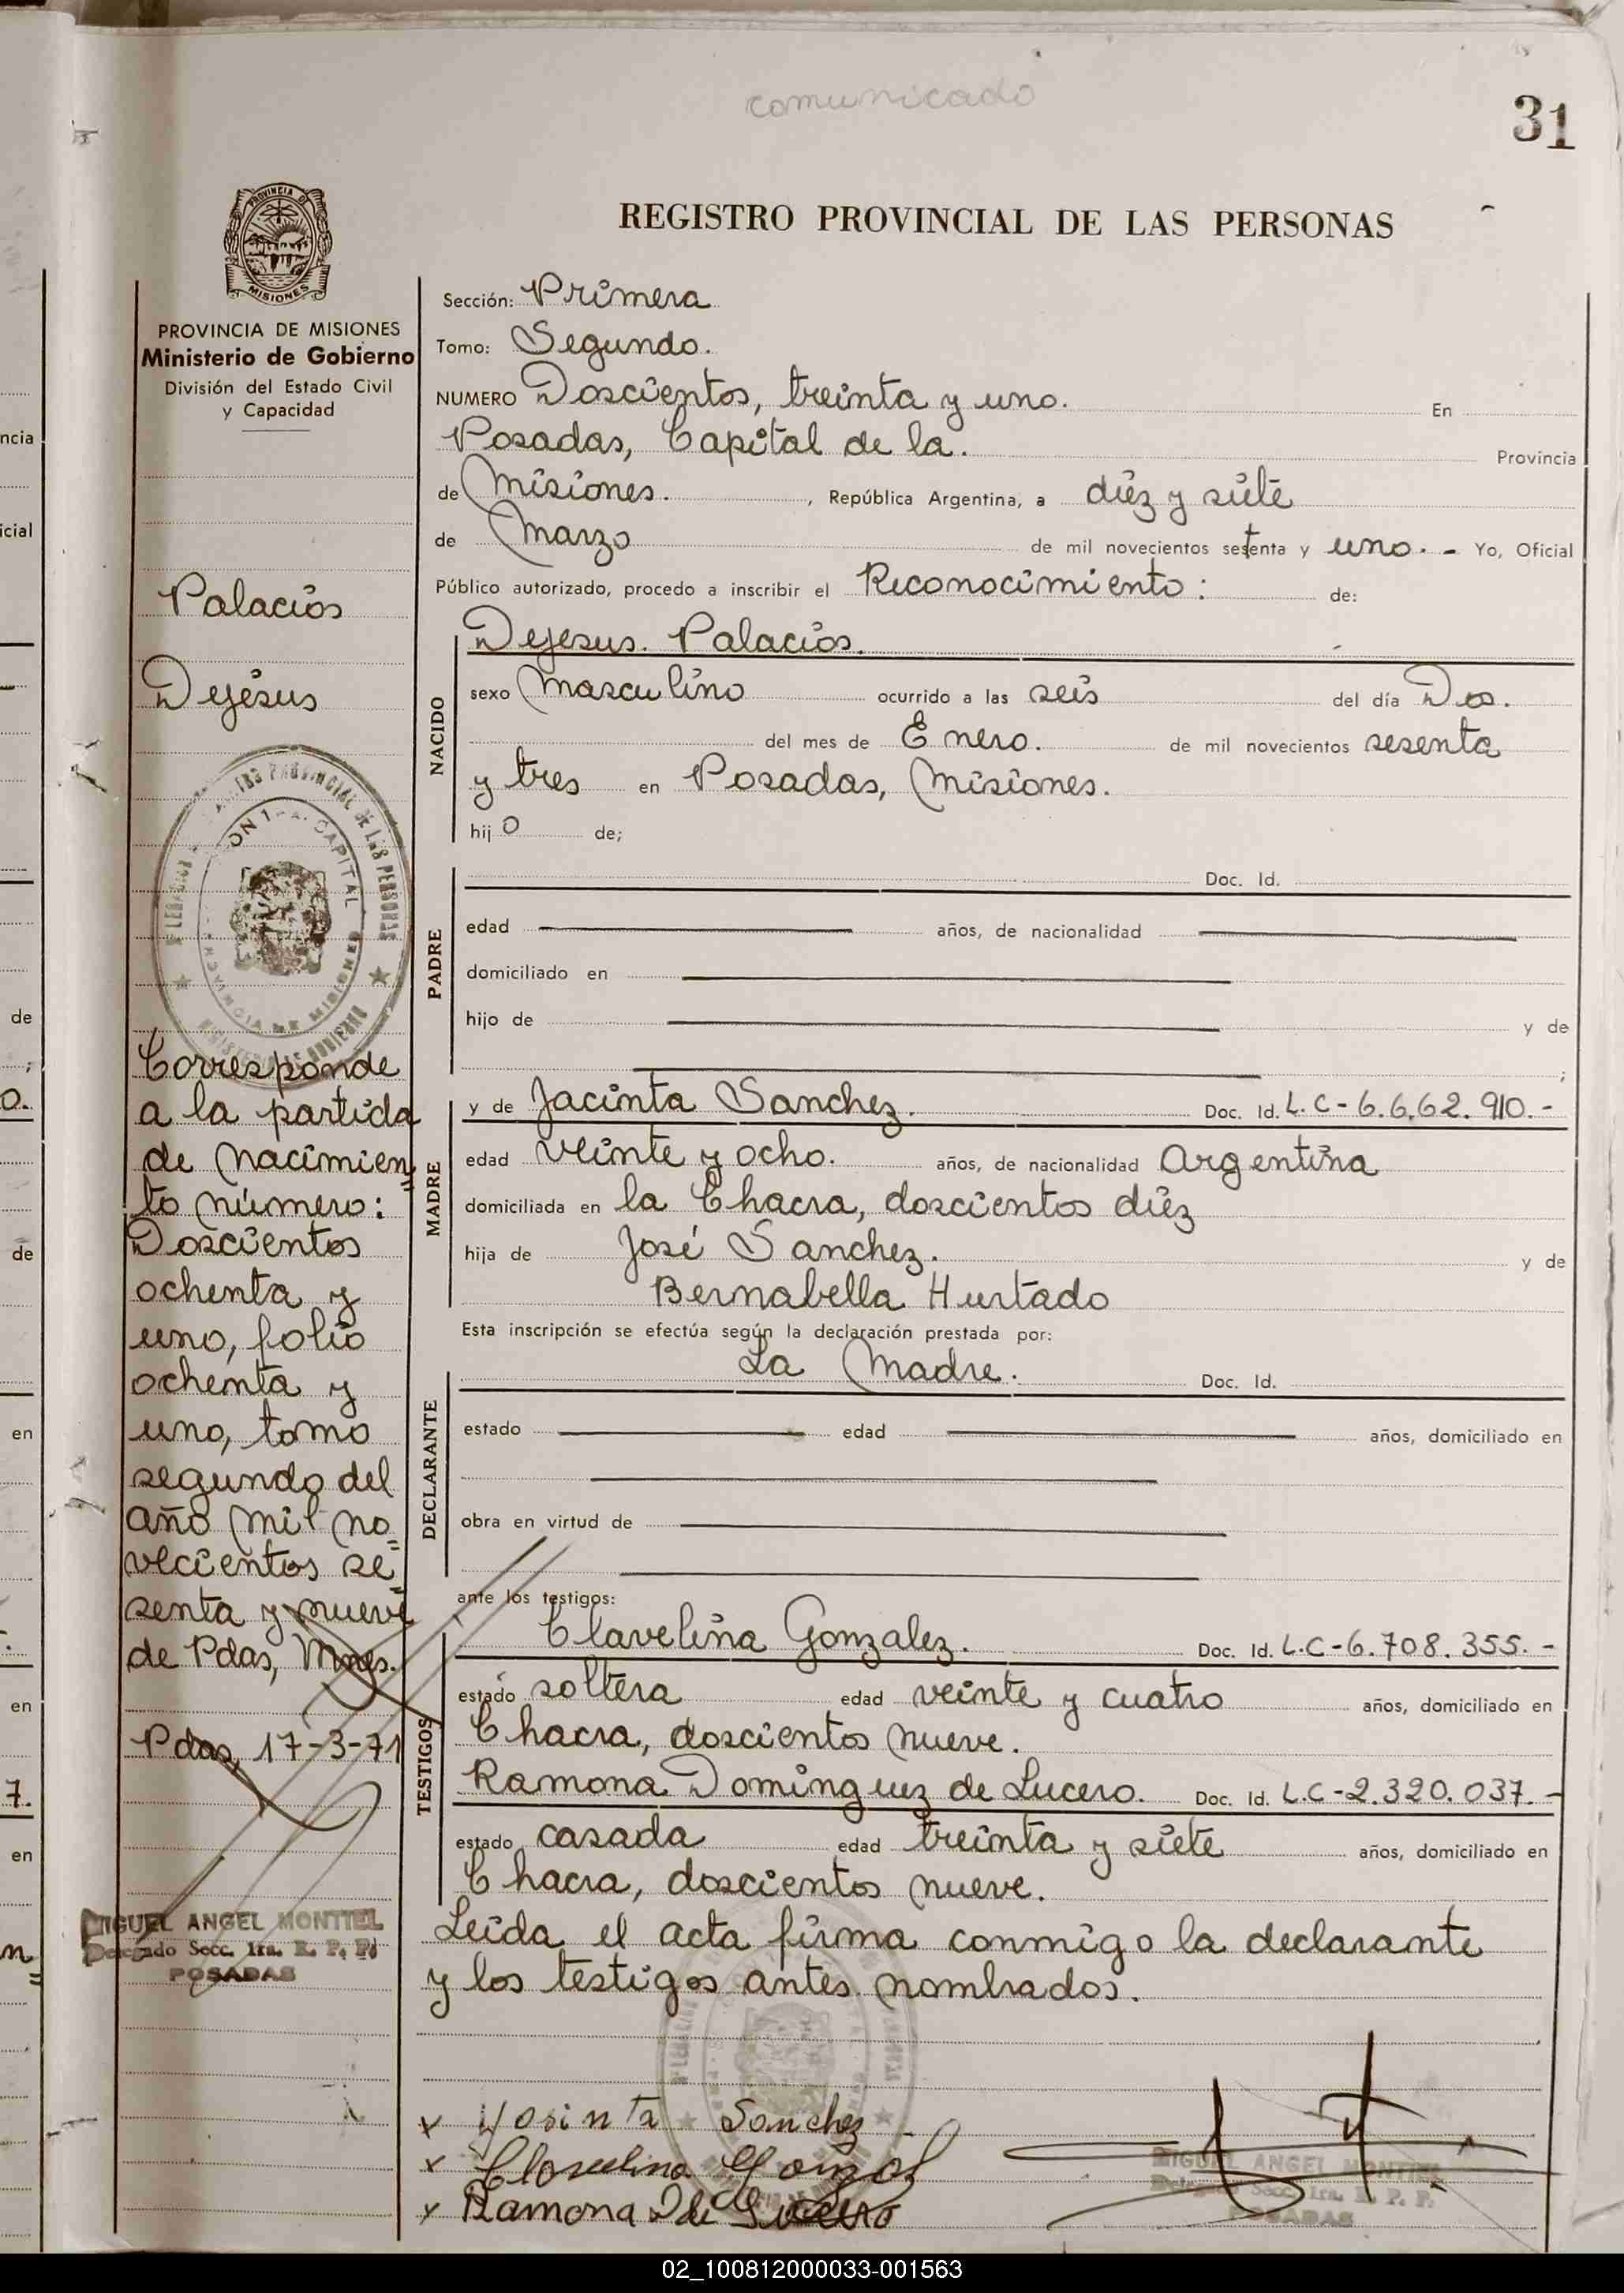 comunicado
31
REGISTRO PROVINCIAL DE LAS PERSONAS
PROVINCIA DE MISIONES
Ministerio de Gobierno
División del Estado Civil
y Capacidad
Palacios
Dejésus
Corresponde
a la partida
de nacimien
to número:
Doscientos
ochenta y
uno, folio
ochenta y
uno, tomo
segundo del
año mil no
vecientos se
senta y nueve
de Pdas, Mnes.
Pdas, 17-3-71
MIGUEL ANGEL MONTIEL
Delegado Secc. 1ra. R. P. P.
POSADAS
Sección: Primera
Tomo: Segundo.
NUMERO Doscientos, treinta y uno. En
Posadas, Capital de la. Provincia
de Misiones. , República Argentina, a diez y siete
de Marzo de mil novecientos setenta y uno. - Yo, Oficial
Público autorizado, procedo a inscribir el Reconocimiento: de:
NACIDO
Dejesus. Palacios.
sexo Masculino ocurrido a las seis del día Dos.
del mes de Enero. de mil novecientos sesenta
y tres en Posadas, Misiones.
hijo de;
PADRE
Doc. Id.
edad años, de nacionalidad
domiciliado en
hijo de y de
;
MADRE
y de Jacinta Sanchez. Doc. Id. L.C-6.662.910.-
edad veinte y ocho. años, de nacionalidad Argentina
domiciliada en la Chacra, doscientos diéz
hija de José Sanchez. y de
Bernabella Hurtado
Esta inscripción se efectúa según la declaración prestada por:
DECLARANTE
La Madre. Doc. Id.
estado edad años, domiciliado en
obra en virtud de
ante los testigos:
TESTIGOS
Clavelina Gonzalez. Doc. Id. L.C-6.708.355.-
estado soltera edad veinte y cuatro años, domiciliado en
Chacra, doscientos nueve.
Ramona Dominguez de Lucero. Doc. Id. L.C-2.320.037.-
estado casada edad treinta y siete años, domiciliado en
Chacra, doscientos nueve.
Leída el acta firma conmigo la declarante
y los testigos antes nombrados.
x Yasinta Sanchez
x Clavelina
x Ramona D de Lucero
MIGUEL ANGEL MONTIEL
Delegado Secc. 1ra. R. P. P.
POSADAS
02_100812000033-001563